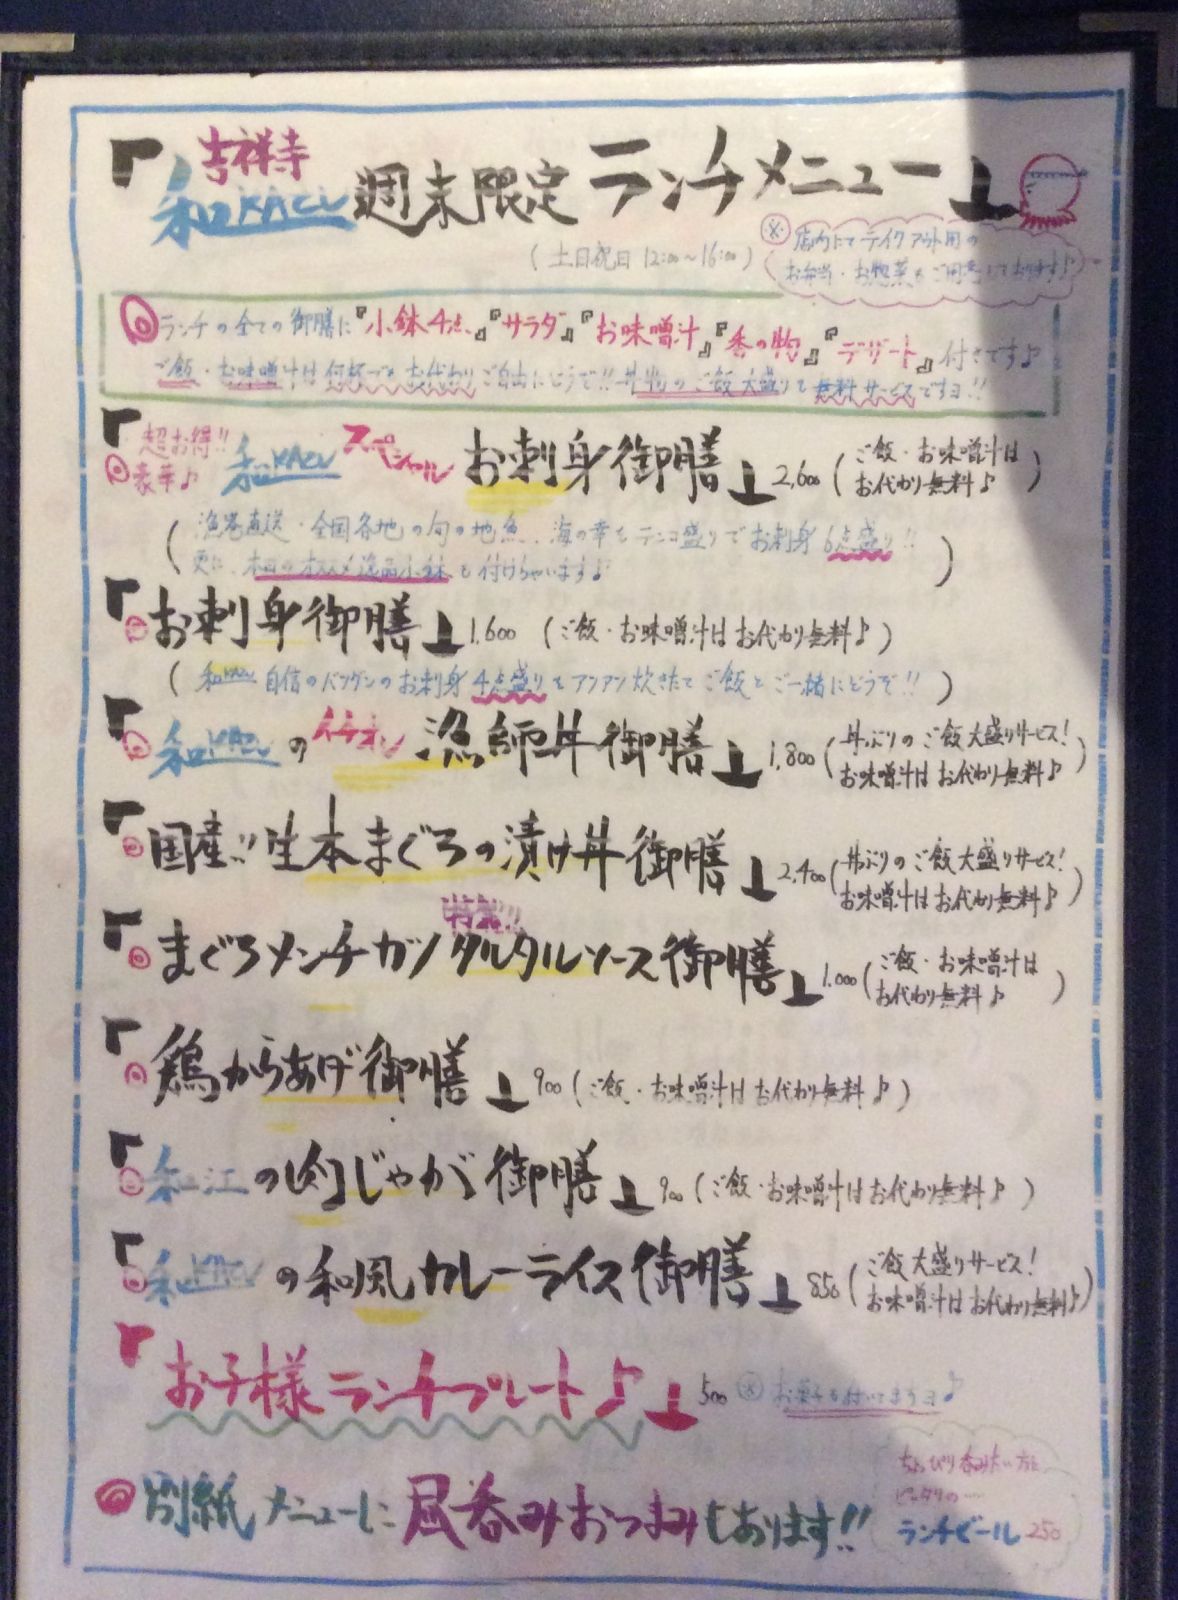 『吉祥寺 和KAZU 週末限定 ランチメニュー』
(土日祝日 12:00〜16:00)
※店内にてテイクアウト用の
お弁当・お惣菜もご用意しております♪
◎ランチの全ての御膳に『小鉢4点』『サラダ』『お味噌汁』『香の物』『デザート』付きです♪
ご飯・お味噌汁は何杯でもお代わりご自由にどうぞ!!丼物のご飯大盛りも無料サービスですヨ!!
『超お得!!
◎豪華♪ 和KAZU スペシャル お刺身御膳』2,600(ご飯・お味噌汁は
お代わり無料♪)
(漁港直送・全国各地の旬の地魚、海の幸をテンコ盛りでお刺身6点盛り!!
更に、本日のオススメ逸品小鉢も付けちゃいます♪)
『◎お刺身御膳』1,600 (ご飯・お味噌汁はお代わり無料♪)
(和KAZU自信のバツグンのお刺身4点盛りをアツアツ炊きたてご飯とご一緒にどうぞ!!)
『◎和KAZUのイチオシ 漁師丼御膳』1,800(丼ぶりのご飯大盛りサービス!
お味噌汁はお代わり無料♪)
『◎国産!!生本まぐろの漬け丼御膳』2,400(丼ぶりのご飯大盛りサービス!
お味噌汁はお代わり無料♪)
特製!!
『◎まぐろメンチカツタルタルソース御膳』1,000(ご飯・お味噌汁は
お代わり無料♪)
『◎鶏からあげ御膳』900(ご飯・お味噌汁はお代わり無料♪)
『◎和江の肉じゃが御膳』900(ご飯・お味噌汁はお代わり無料♪)
『◎和KAZUの和風カレーライス御膳』850(ご飯大盛りサービス!
お味噌汁はお代わり無料♪)
『お子様ランチプレート♪』500 ※お菓子も付いてますヨ♪
◎別紙メニューに昼呑みおつまみもあります!!
ちょっぴり呑みたい方に
ピッタリの……
ランチビール 250